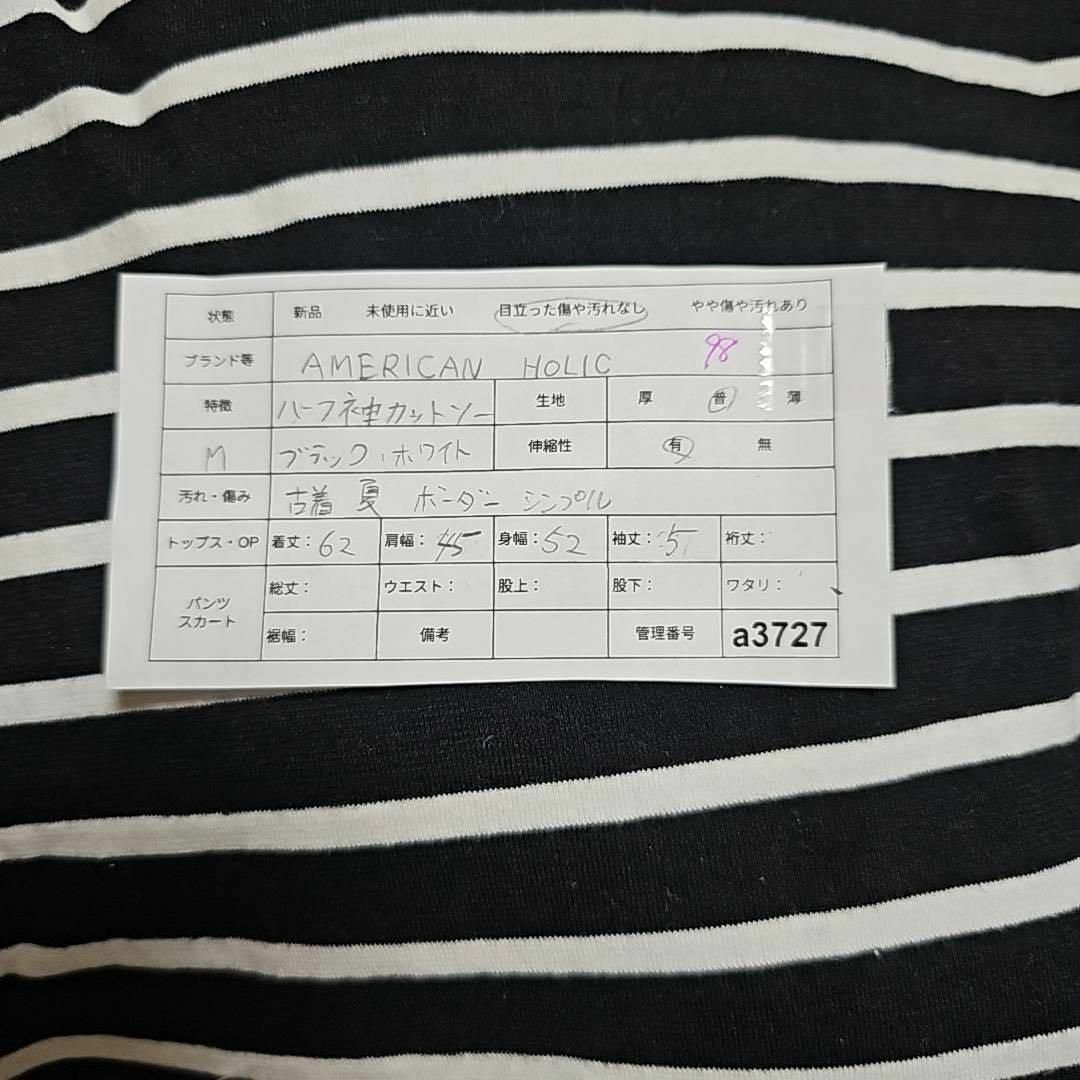 状態 新品 未使用に近い 目立った傷や汚れなし やや傷や汚れあり
ブランド等 AMERICAN HOLIC 98
特徴 ハーフ袖カットソー 生地 厚 普 薄
M ブラック・ホワイト 伸縮性 有 無
汚れ・傷み 古着 夏 ボーダー シンプル
トップス・OP 着丈:62 肩幅:45 身幅:52 袖丈: 裄丈:
パンツ スカート 総丈: ウエスト: 股上: 股下: ワタリ:
裾幅: 備考 管理番号 a3727